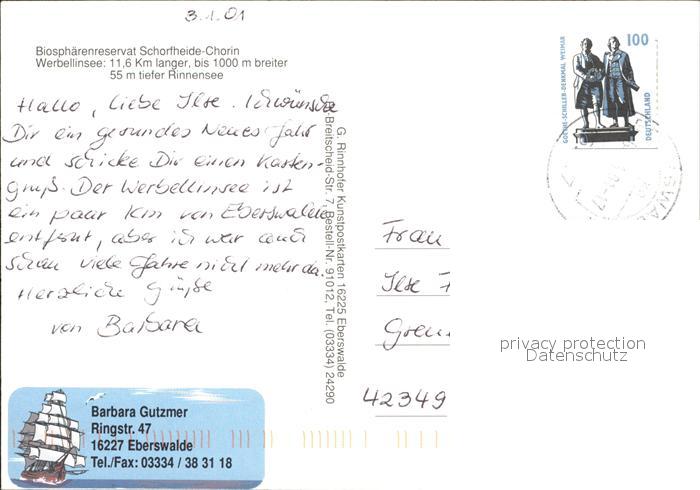 3.1.01
Biosphärenreservat Schorfheide-Chorin
Werbellinsee: 11,6 Km langer, bis 1000 m breiter
55 m tiefer Rinnensee
Hallo, liebe Ilse. Ich wünsche
Dir ein gesundes Neues Jahr
und schicke Dir einen Karten-
gruß. Der Werbellinsee ist
ein paar km von Eberswalde
entfernt, aber ich war auch
schon viele Jahre nicht mehr da.
Herzliche Grüße
von Barbara
G. Rinnhofer Kunstpostkarten 16225 Eberswalde
-Breitscheid-Str. 7, Bestell-Nr. 91012, Tel. (03334) 24290
GOETHE-SCHILLER-DENKMAL WEIMAR
100
DEUTSCHLAND
Frau
Ilse
42349
privacy protection
Datenschutz
Barbara Gutzmer
Ringstr. 47
16227 Eberswalde
Tel./Fax: 03334 / 38 31 18